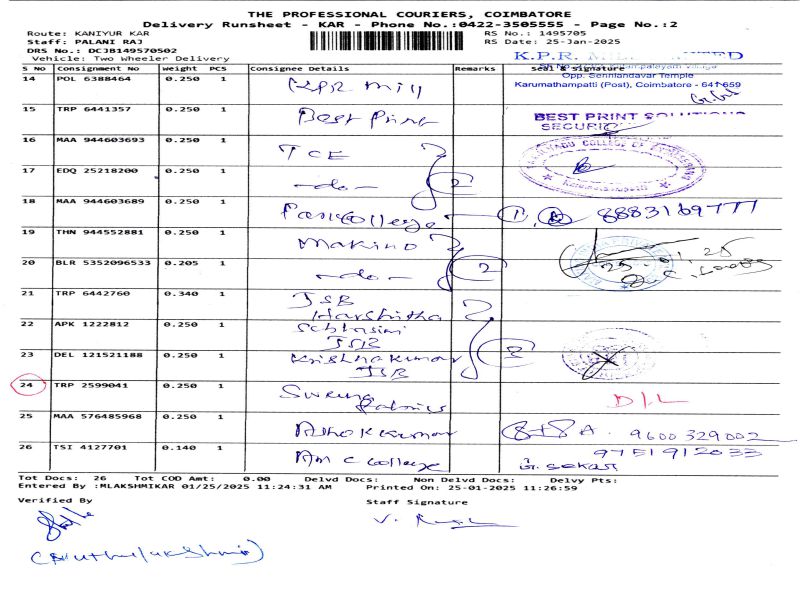 THE PROFESSIONAL COURIERS, COIMBATORE
Delivery Runsheet - KAR - Phone No.:0422-3505555 - Page No.:2
Route: KANIYUR KAR RS No.: 1495705
Staff: PALANI RAJ RS Date: 25-Jan-2025
DRS No.: DCJB149570502
Vehicle: Two Wheeler Delivery
S No Consignment No Weight PCS Consignee Details Remarks Seal & Signature
Opp. Senniandavar Temple
Karumathampatti (Post), Coimbatore - 641 659
14 POL 6388464 0.250 1 KPR mill
15 TRP 6441357 0.250 1 Best Print BEST PRINT SOLUTIONS
16 MAA 944603693 0.250 1 TCE
17 EDQ 25218200 0.250 1 -do- 2
18 MAA 944603689 0.250 1 Park College 8883169777
19 THN 944552881 0.250 1 Makino
20 BLR 5352096533 0.205 1 -do- 2
21 TRP 6442760 0.340 1 JSR Harshitha
22 APK 1222812 0.250 1 JSR
23 DEL 121521188 0.250 1 Krishnakumar JSR
24 TRP 2599041 0.250 1 Fabrics D/L
25 MAA 576485968 0.250 1 Ashok Kumar 9600329002
26 TSI 4127701 0.140 1 AM C College G. Sekar 9751912033
Tot Docs: 26 Tot COD Amt: 0.00 Delvd Docs: Non Delvd Docs: Delvy Pts:
Entered By :MLAKSHMIKAR 01/25/2025 11:24:31 AM Printed On: 25-01-2025 11:26:59
Verified By Staff Signature
(Muthulakshmi)